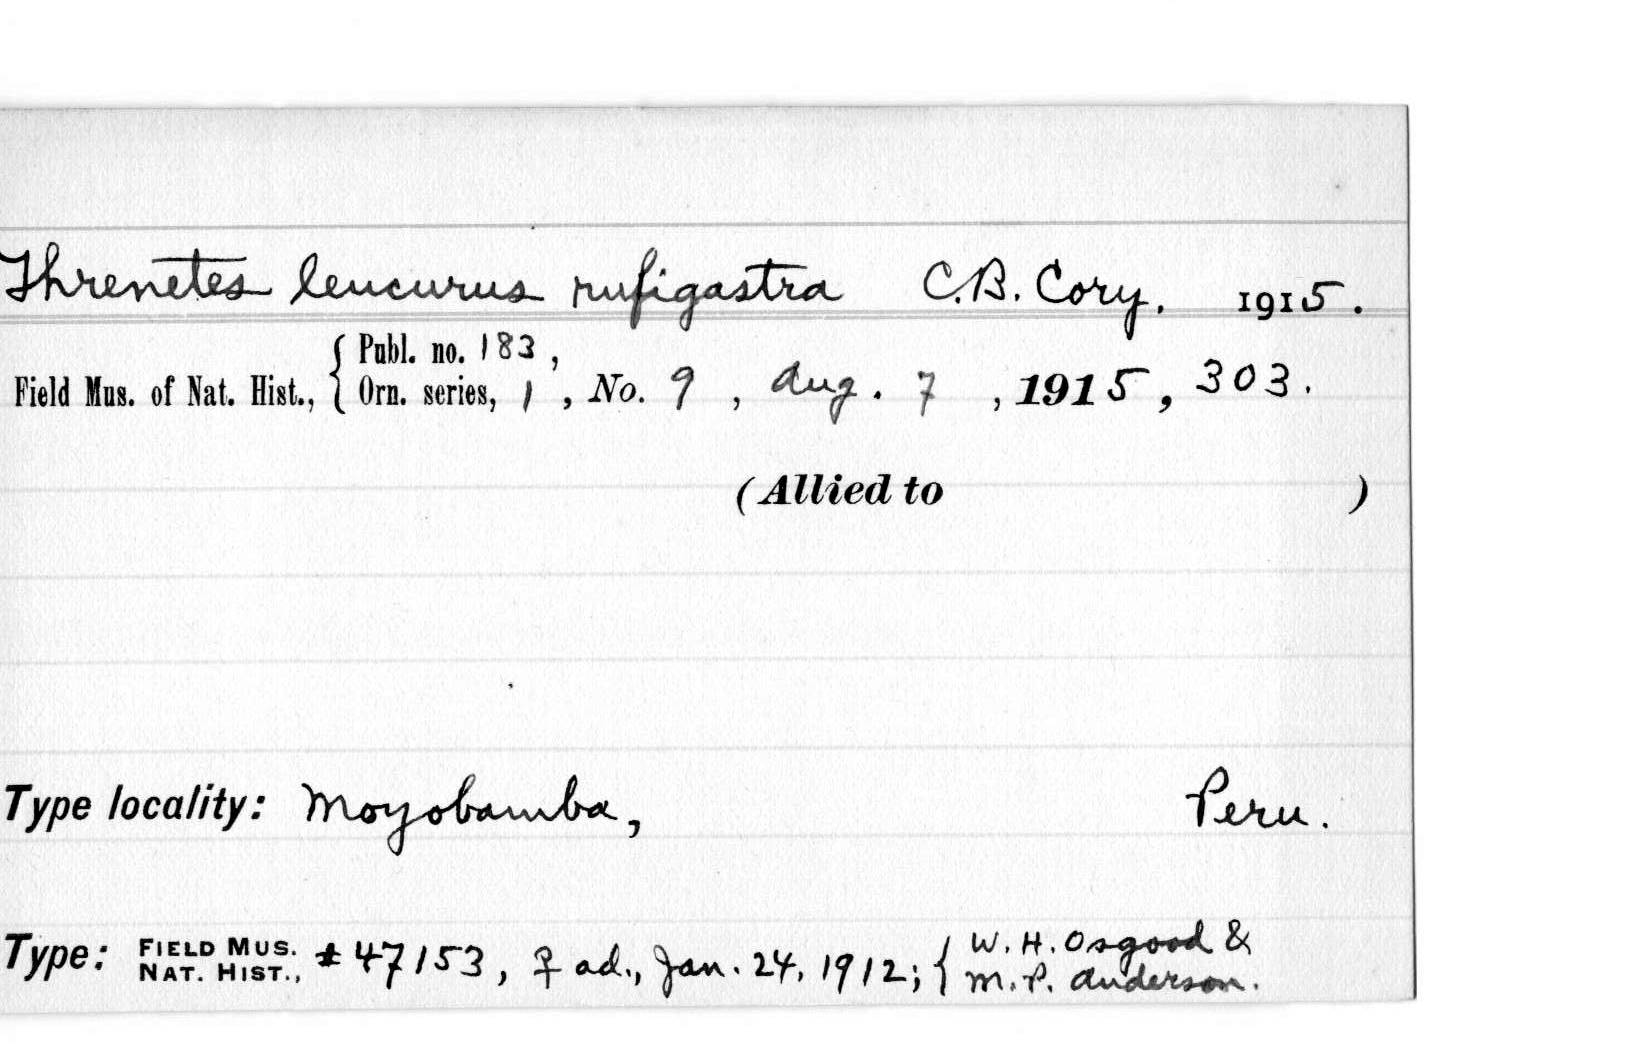 Threnetes leucurus rufigastra C.B. Cory. 1915.
Publ. no. 183,
Field Mus. of Nat. Hist., { Orn. series, 1, No. 9, Aug. 7, 1915, 303.
(Allied to )
Type locality: Moyobamba, Peru.
Type: FIELD MUS. NAT. HIST., #47153, ♀ ad., Jan. 24, 1912; { W. H. Osgood &
M. P. Anderson.